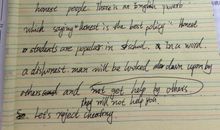 honest people. There is an English proverb
which saying "Honest is the best policy". Honest
students are popular in school. In a word
a dishonest man will be looked down upon by
others and not got help by others
they will not help you.
So. Let's reject cheating.